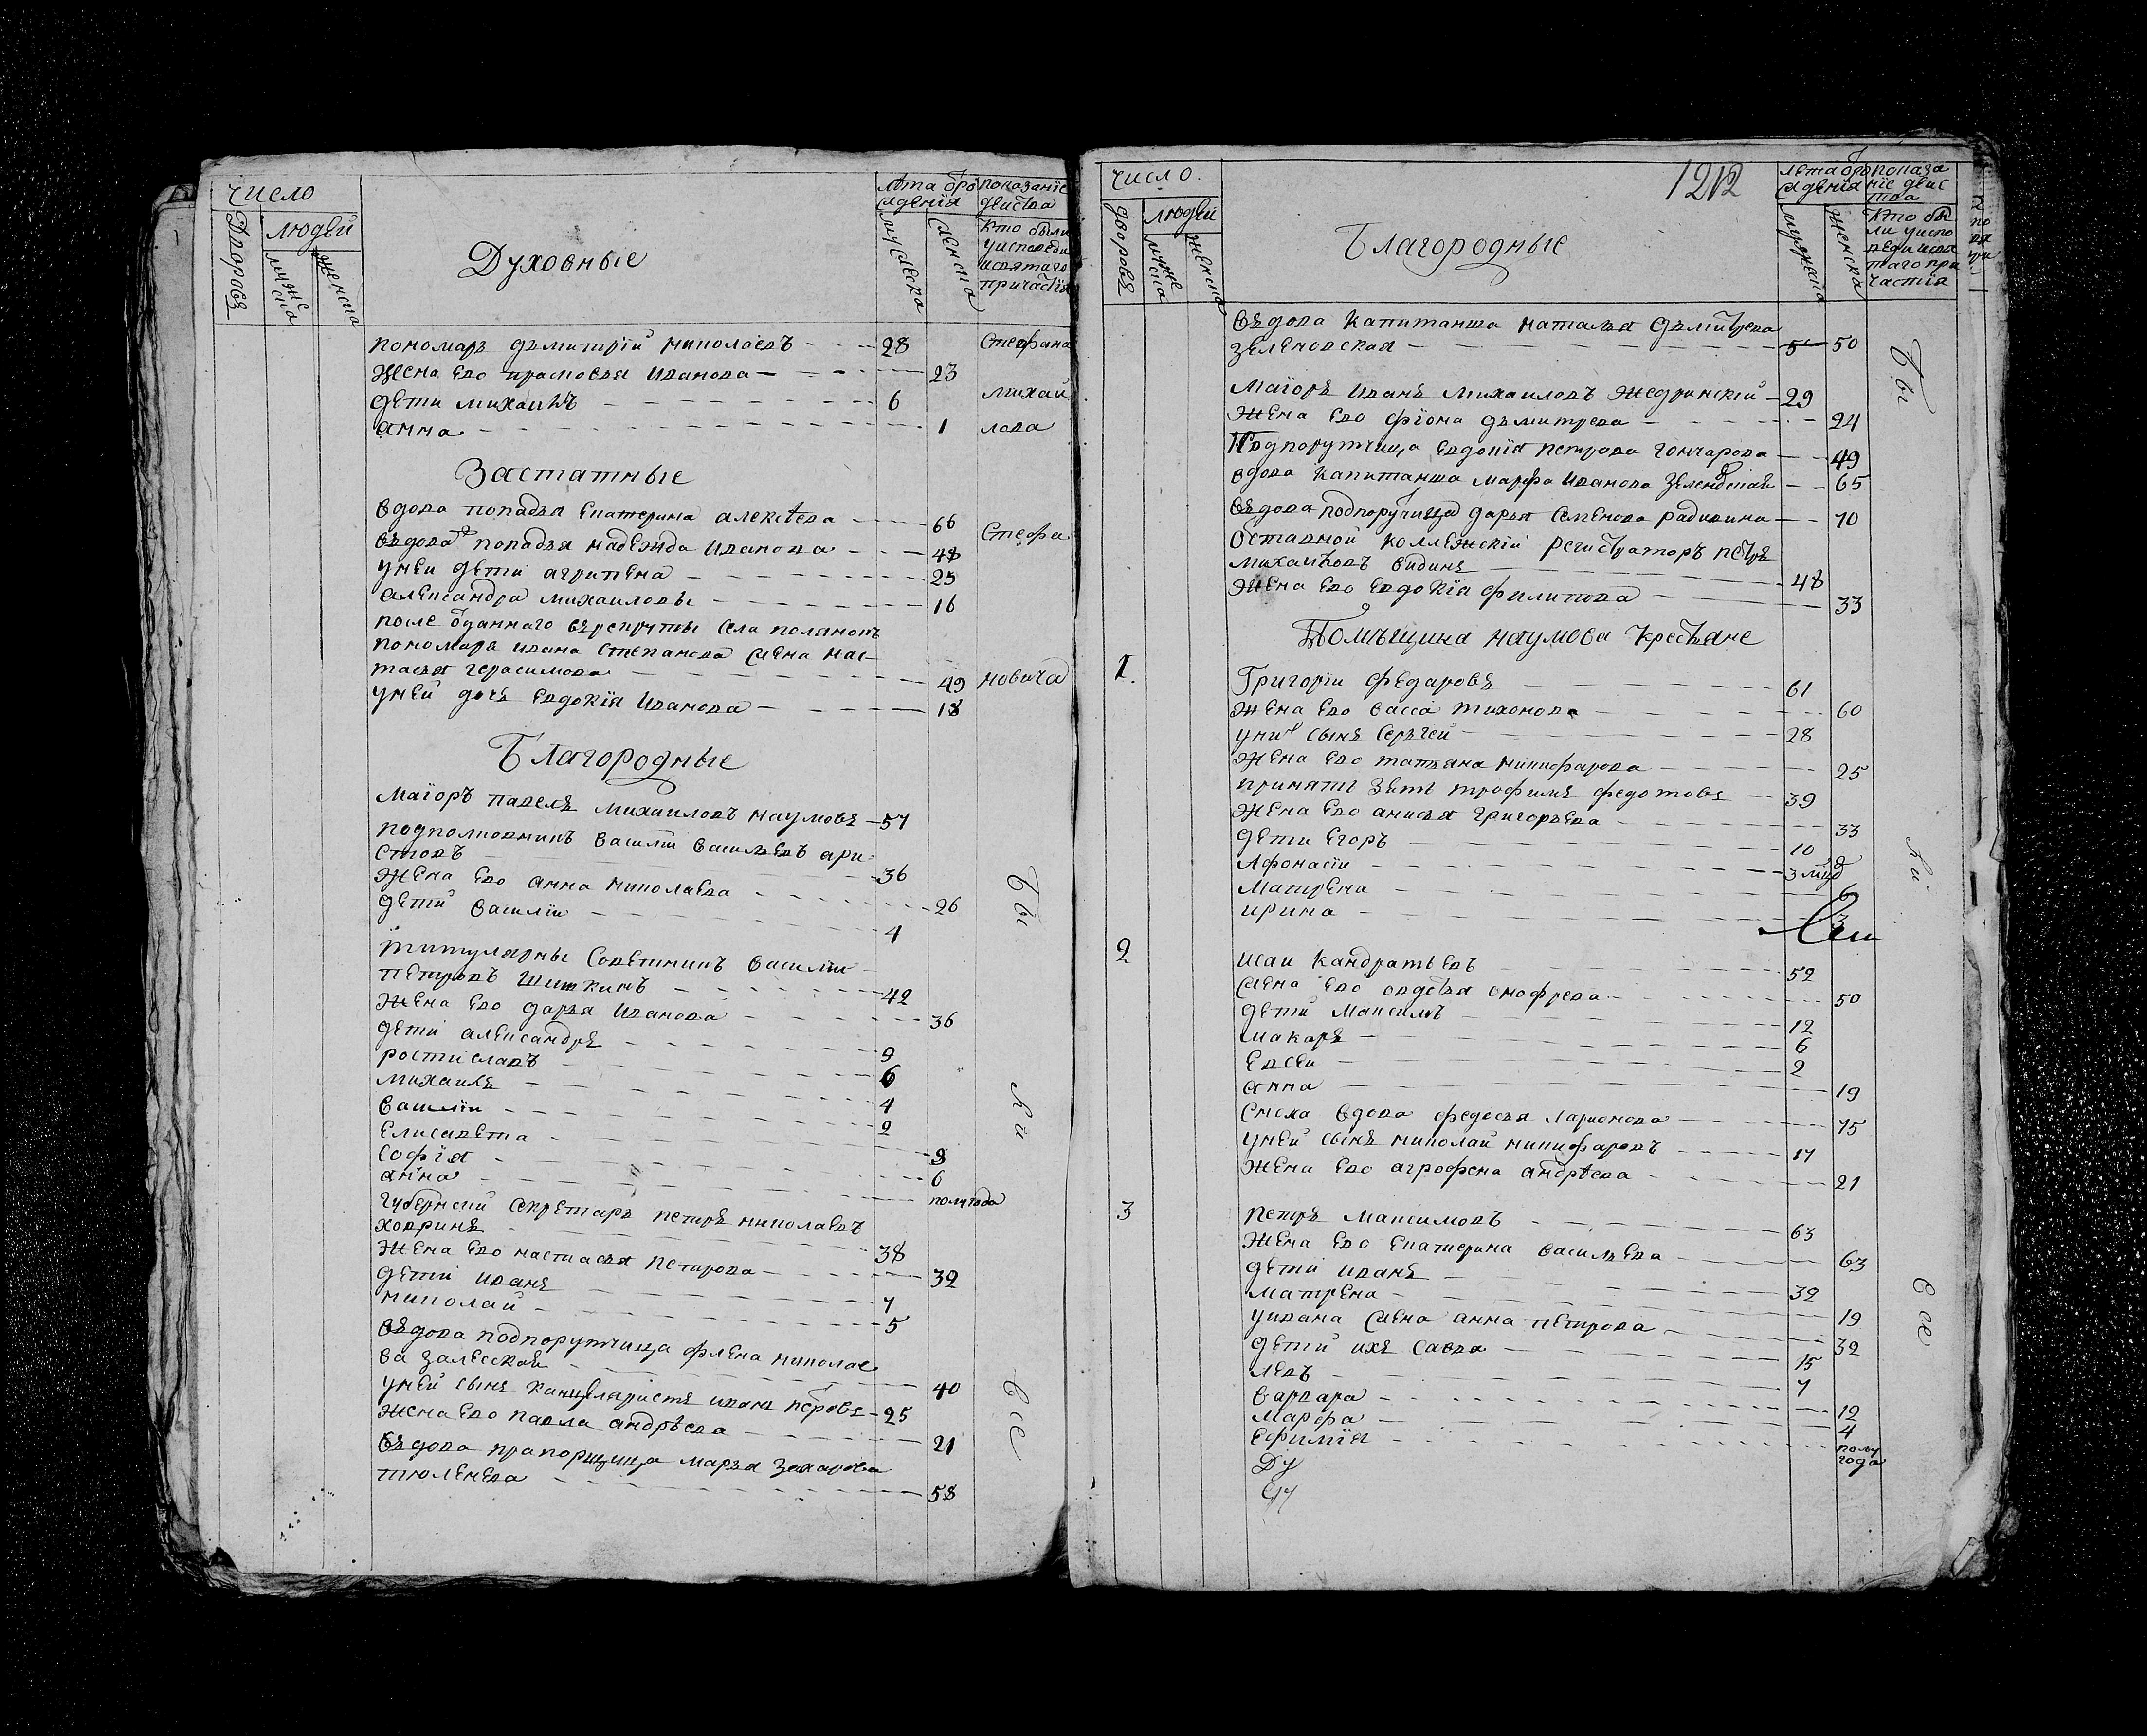 число
Дворовъ
людей
мужеска
женска
Духовные
лѣта бро
ждения
мужеска
женска
показаніе
действа
кто были
у исповеди
и святаго
причастія
пономарь дъмитрій николаевъ 28
жена ево прасковья иванова 23
дети михаилъ 6
анна 1
Застатные
вдова попадья екатерина алексѣева 66
въдова попадья надежда иванова 48
у неи дети агрипена 25
александра михаиловы 16
после отданнаго въ рекруты села поляновъ
пономаря ивана степанова жена нас
тасья герасимова 49
у ней дочь евдокія иванова 18
Стефана
михай
лова
Стефа
новича
Благородные
маіоръ павелъ михаиловъ наумовъ 57
подполковникъ василій васильевъ ари
стовъ 36
жена ево анна николаева 26
дети василіи 4
титулярны советникъ василіи
петровъ шишкинъ 42
жена ево дарья иванова 36
дети александръ 9
ростиславъ 6
михаила 4
василіи 2
елисавета 8
софія 6
анна полугода
губернски секретарь петръ николаевъ
ховринъ 38
жена ево настасья петрова 32
дети иванъ 7
николаи 5
въдова подпорутчица флена николае
ва залесская 40
у ней сынъ канцеляристъ иванъ петровъ 25
жена ево павла андрѣева 21
въдова прапорщица марья захарова
тюленева 58
бы
ли
все
число
дворовъ
людей
мужеска
женска
Благородные
1212
лета бро
ждения
мужеска
женска
показа
ніе деис
тва
кто бы
ли у испо
веди и свя
таго при
частія
въдова капитанша наталья дъмитрева
зеленовская 50
маіоръ иванъ михаиловъ жедринскій 29
жена ево фіона дъмитрева 24
подпорутчица евдокія петрова гончарова 49
вдова капитанша марфа иванова зеленовская 65
въдова подпоручица дарья семенова радивина 70
отставной коллежскій регистраторъ петръ
михаиловъ видинъ 48
жена ево евдокія филипова 33
Помѣщика наумова крестьяне
1 Григоріи федаровъ 61
жена ево васса тихонова 60
у них сынъ серьгеи 28
жена ево татьяна никифарова 25
приняты зять трофимъ федотовъ 39
жена ево анисья григорьева 33
дети егоръ 10
Афонасіи 3
матирена 6
ирина 3
2 исаи кандратьевъ 52
жена ево овдотья онофрева 50
дети максимъ 12
макаръ 6
евсеи 2
анна 19
сноха вдова федосья ларионова 75
у ней сынъ николаи никифаровъ 17
жена ево агрофена андрѣева 21
3 петръ максимовъ 63
жена ево екатерина васильева 63
дети иванъ 32
матрена 19
у ивана жена анна петрова 32
дети ихъ савва 15
левъ 7
варвара 12
марфа 4
ефимія полу
года
Ду
бы
ли
все